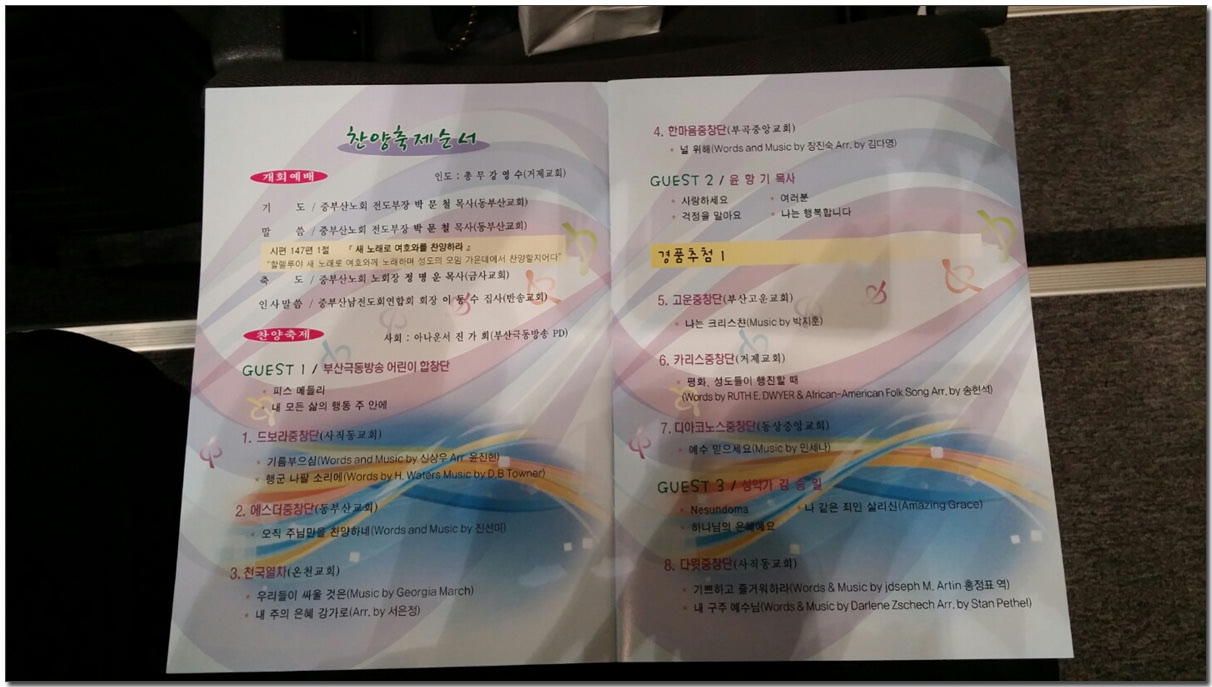 찬양축제순서
개회예배
인도 : 총 무 강 영 수(거제교회)
기 도 / 중부산노회 전도부장 박 문 철 목사(동부산교회)
말 씀 / 중부산노회 전도부장 박 문 철 목사(동부산교회)
시편 147편 1절 『 새 노래로 여호와를 찬양하라 』
"할렐루야 새 노래로 여호와께 노래하며 성도의 모임 가운데에서 찬양할지어다"
축 도 / 중부산노회 노회장 정 명 운 목사(금사교회)
인사말씀 / 중부산남전도회연합회 회장 이 동 수 집사(반송교회)
찬양축제
사회 : 아나운서 진 가 희(부산극동방송 PD)
GUEST 1 / 부산극동방송 어린이 합창단
• 피스 메들리
• 내 모든 삶의 행동 주 안에
1. 드보라중창단(사직동교회)
• 기름부으심(Words and Music by 신상우 Arr. 윤진현)
• 행군 나팔 소리에(Words by H. Waters Music by D.B Towner)
2. 에스더중창단(동부산교회)
• 오직 주님만을 찬양하네(Words and Music by 진선미)
3. 천국열차(온천교회)
• 우리들이 싸울 것은(Music by Georgia March)
• 내 주의 은혜 강가로(Arr. by 서은정)
4. 한마음중창단(부곡중앙교회)
• 널 위해(Words and Music by 장진숙 Arr. by 김다영)
GUEST 2 / 윤 항 기 목사
• 사랑하세요 • 여러분
• 걱정을 말아요 • 나는 행복합니다
경품추첨 1
5. 고운중창단(부산고운교회)
• 나는 크리스챤(Music by 박지훈)
6. 카리스중창단(거제교회)
• 평화, 성도들이 행진할 때
(Words by RUTH E. DWYER & African-American Folk Song Arr. by 송현석)
7. 디아코노스중창단(동상중앙교회)
• 예수 믿으세요(Music by 민세나)
GUEST 3 / 성악가 김 승 일
• Nesundoma • 나 같은 죄인 살리신(Amazing Grace)
• 하나님의 은혜에요
8. 다윗중창단(사직동교회)
• 기쁘하고 즐거워하라(Words & Music by jdseph M. Artin 홍정표 역)
• 내 구주 예수님(Words & Music by Darlene Zschech Arr. by Stan Pethel)